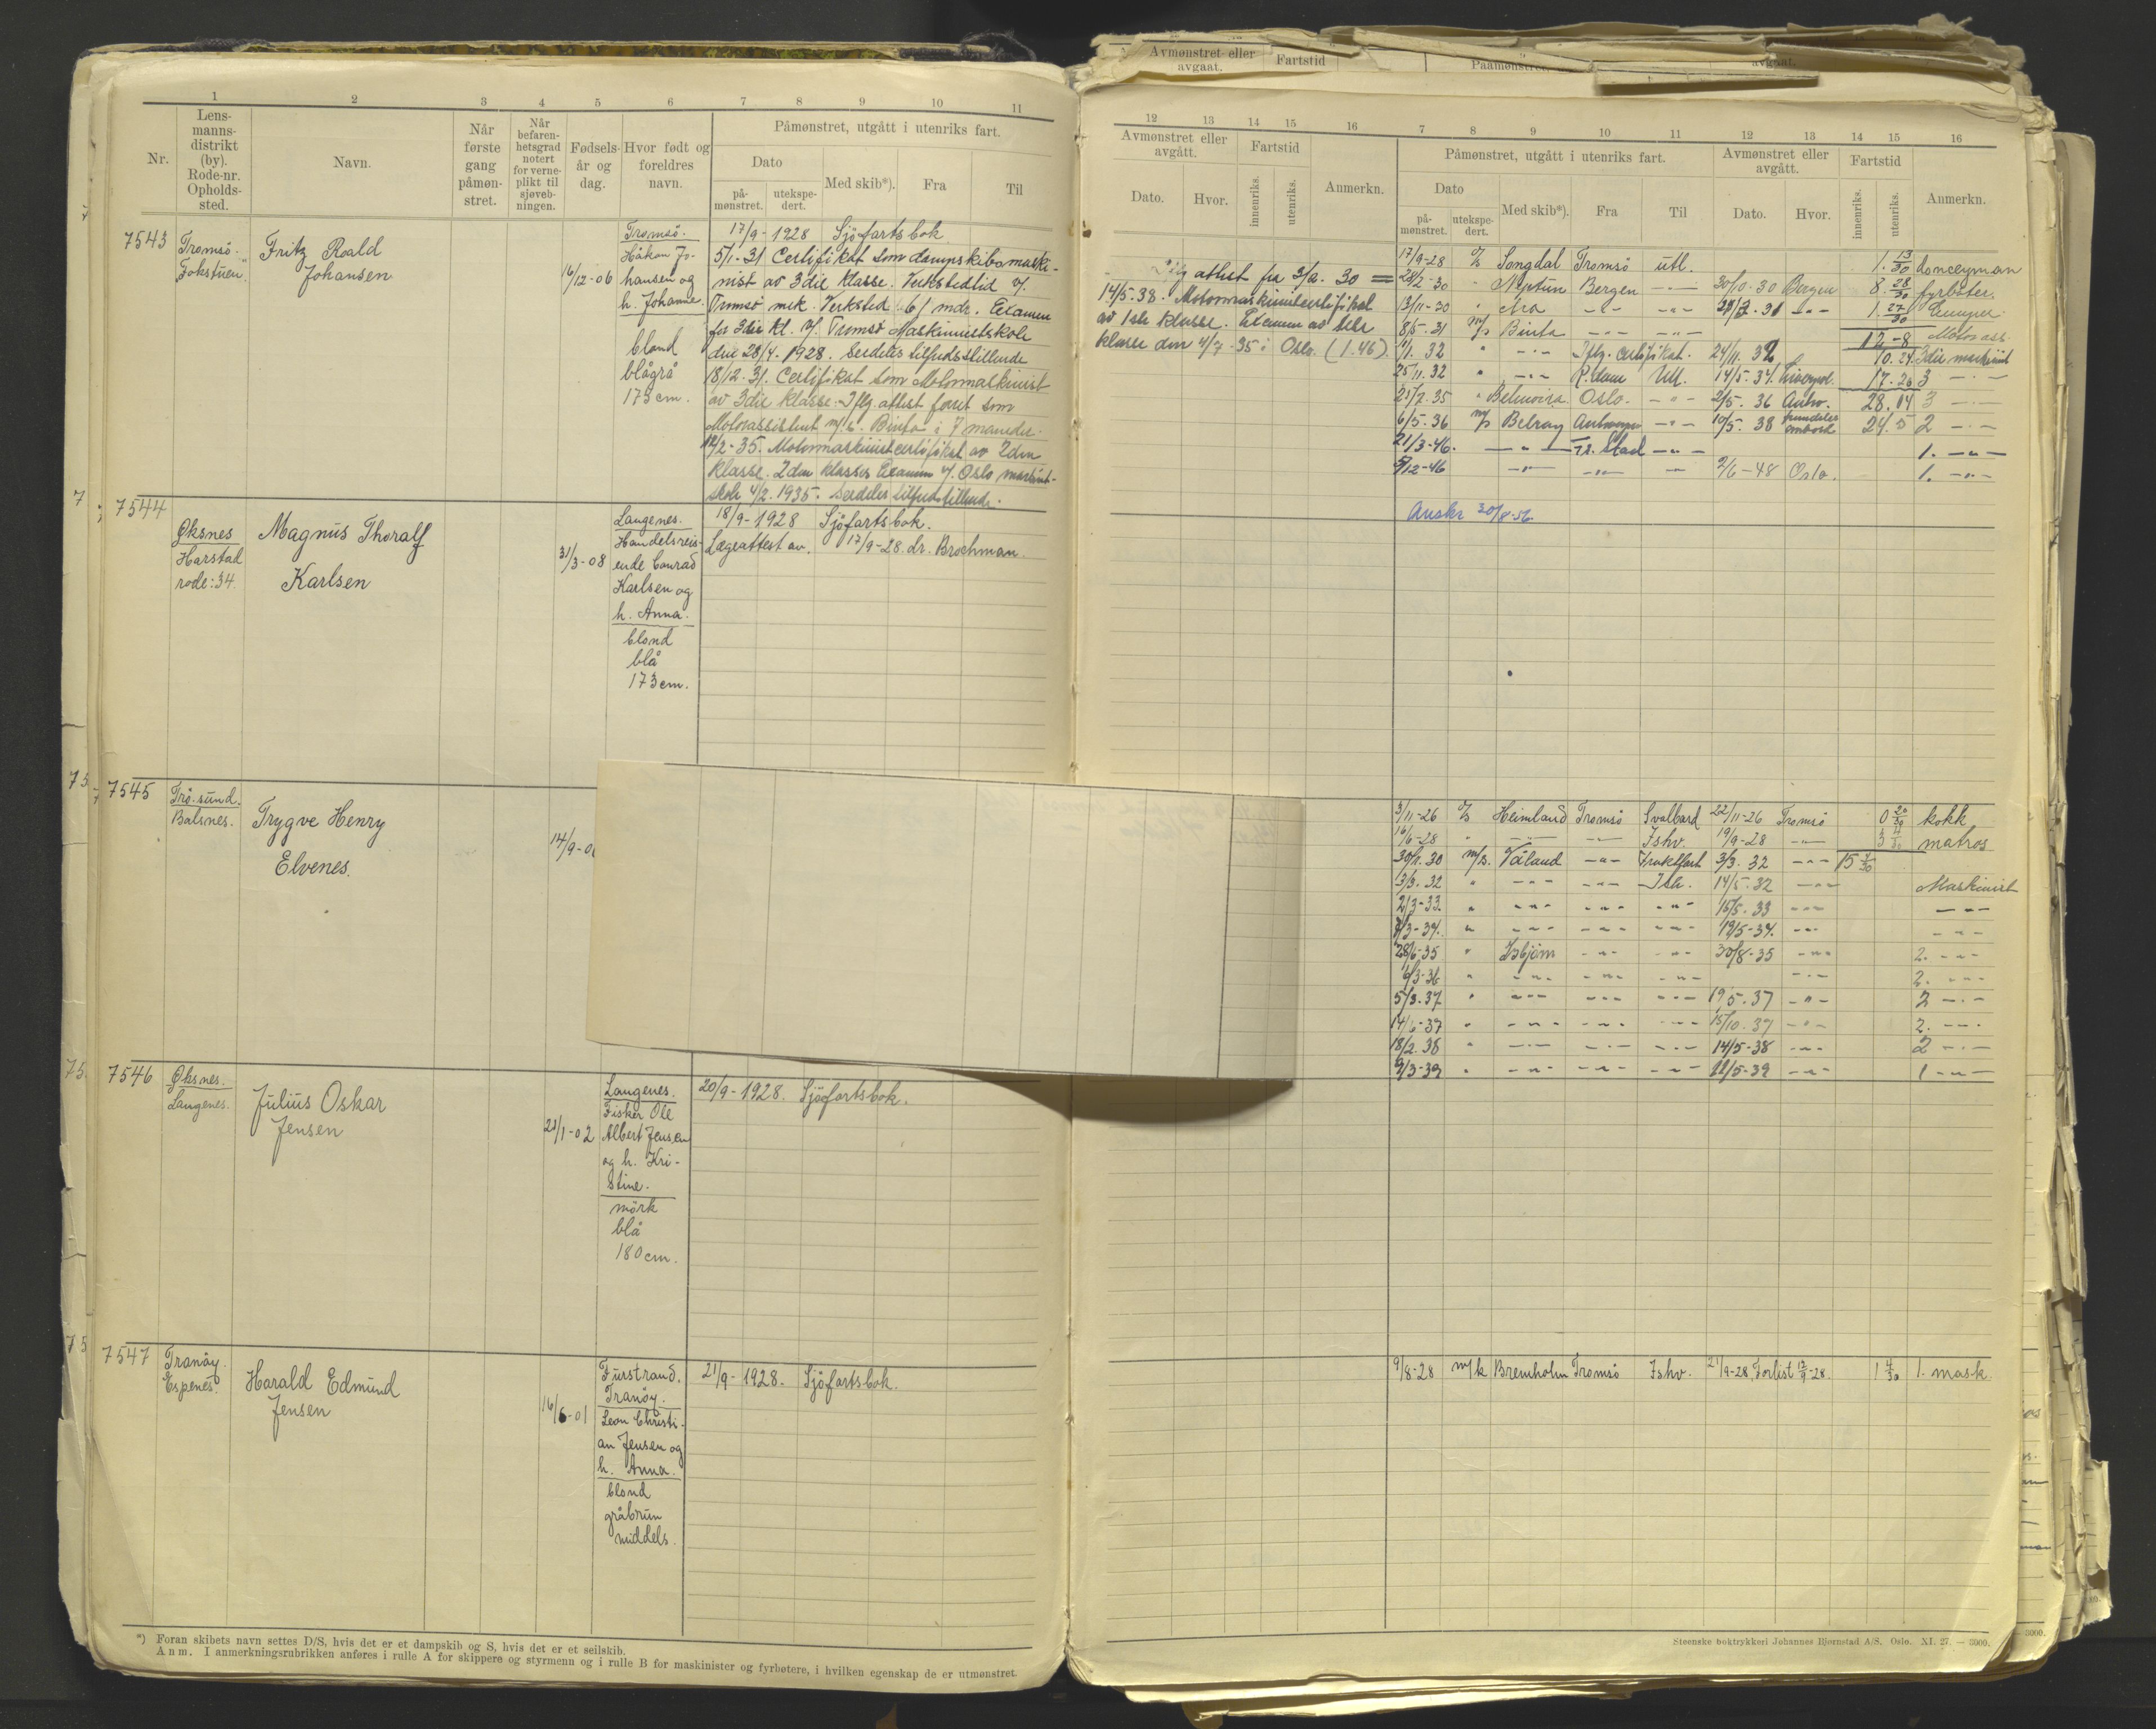 Avmønstret eller avgaat. Fartstid
1 2 3 4 5 6 7 8 9 10 11
Nr.
Lens-
manns-
distrikt
(by).
Rode-nr.
Opholds-
sted.
Navn.
Når
første
gang
påmøn-
stret.
Når
befaren-
hetsgrad
notert
for verne-
plikt til
sjøveb-
ningen.
Fødsels-
år og
dag.
Hvor født og
foreldres
navn.
Påmønstret, utgått i utenriks fart.
Dato
på-
mønstret.
utekspe-
dert.
Med skib*).
Fra
Til
7543
Tromsö.
"Fokstuen"
Fritz Roald
Johansen
16/12-06
Tromsö.
Håkon Jo-
hansen og
h. Johanne.
blond
blågrå
173 cm.
17/9-1928 Sjöfartsbok
5/1-31 Certifikat som dampskibsmaski-
nist av 3die klasse. Verkstedtid v/
Tromsö mek. Verksted 61 mdr. Examen
for 3die kl. v/ Tromsö Maskinistskole
den 28/4-1928. Særdeles tilfredsstillende
18/12-31. Certifikat som Motormaskinist
av 3die klasse. Iflg. attest faret som
Motorassistent m/s. Binta i 7 maneder.
12/2-35. Motormaskinistcertifikat av 2den
klasse. 2den klasses Examen v/ Oslo maskinist-
skole 4/2.1935. Særdeles tilfredstillende.
7544
Øksnes
Harstad
rode: 34.
Magnus Thoralf
Karlsen
31/3-08
Langenes.
Handelsreis-
ende Conrad
Karlsen og
h. Anna.
blond
blå
173 cm.
18/9-1928 Sjöfartsbok.
Lægeattest av 17/9-28. dr. Brochman.
7545
Trö.sund.
Balsnes.
Trygve Henry
Elvenes.
14/9-0
7546
Øksnes.
Langenes.
Julius Oskar
Jensen
21/1-02
Langenes.
Fisker Ole
Albert Jensen
og h. Kri-
stine.
mörk
blå
180 cm.
20/9-1928. Sjöfartsbok.
7547
Tranöy.
Espenes.
Harald Edmund
Jensen
16/6-01
Furstrand.
Tranöy.
Leon Christi-
an Jensen og
h. Anna.
blond
gråbrun
middels.
21/9-1928. Sjöfartsbok.
*) Foran skibets navn settes D/S, hvis det er et dampskib og S, hvis det er et seilskib.
Anm. I anmerkningsrubrikken anføres i rulle A for skippere og styrmenn og i rulle B for maskinister og fyrbøtere, i hvilken egenskap de er utmønstret.
12 13 14 15 16 7 8 9 10 11 12 13 14 15 16
Avmønstret eller
avgått.
Fartstid
Dato. Hvor. innenriks. utenriks. Anmerkn.
Påmønstret, utgått i utenriks fart.
Dato
på-
mønstret.
utekspe-
dert.
Med skib*). Fra Til
Avmønstret eller
avgått.
Dato. Hvor.
Fartstid
innenriks. utenriks.
Anmerkn.
attest fra 3/2. 30 =
14/5-38. Motormaskinistcertifikat
av 1ste klasse. Examen av 1ste
klasse den 4/7-35 i Oslo. (1.46).
17/9-28 d/s Songdal Tromsö utl. 1. 13/30 donceyman
28/2-30 " Neptun Bergen -"- 30/10-30 Bergen 8. 28/30 fyrböter.
13/11-30 " Ara -"- -"- -"- 1. 27/30 Lemper.
8/5-31 m/s Binta -"- -"- 12-8 Motorass.
1/1.32 " -"- Iflg. certifikat. 24/11.32 10.24 3die maskinist
25/11.32 " -"- R.dam Utl. 14/5-34. Liverpool. 17.20 3 -"-
21/7.35 " Belmoira Oslo. -"- 2/5.36 Antw. 28.14 3 -"-
6/5-36 m/s Belray Antwerpen -"- 10/5.38 fremdeles ombord 24.5 2 -"-
21/3-46. -"- Fr. Stad -"- 1. -"-
5/12-46 -"- -"- -"- 2/6-48 Oslo. 1. -"-
Auskr 30/8-56.
3/11-26 d/s Heimland Tromsö Svalbard 22/11-26 Tromsö 0 20/30 kokk
16/6-28 " -"- -"- Ishv. 19/9-28 -"- 3 4/30 matros
30/1.30 m/s. Våland -"- Fraktfart 3/3.32 -"- 15 4/30
13/3.32 " -"- -"- Ish. 14/5-32 -"- Maskinist
2/3-33. " -"- -"- -"- 15/5.33 -"- -"-
8/3-34. " -"- -"- -"- 19/5-34. -"- -"-
28/6-35 " Isbjørn -"- -"- 30/8-35 -"- 2. -"-
6/3-36 " -"- -"- -"- -"- 2. -"-
5/3.37 " -"- -"- -"- 19/5-37 -"- 2 -"-
14/6-37 " -"- -"- -"- 15/10.37 -"- 2. -"-
18/2.38 " -"- -"- -"- 14/5-38 -"- 2 -"-
9/3-39 " -"- -"- -"- 11/5-39 -"- 1 -"-
9/8-28 m/k Bremholm Tromsö Ishv. 21/9-28, Forlist 12/9-28. 1 4/30 1. mask.
Steenske boktrykkeri Johannes Bjørnstad A/S. Oslo. XI. 27. — 3000.